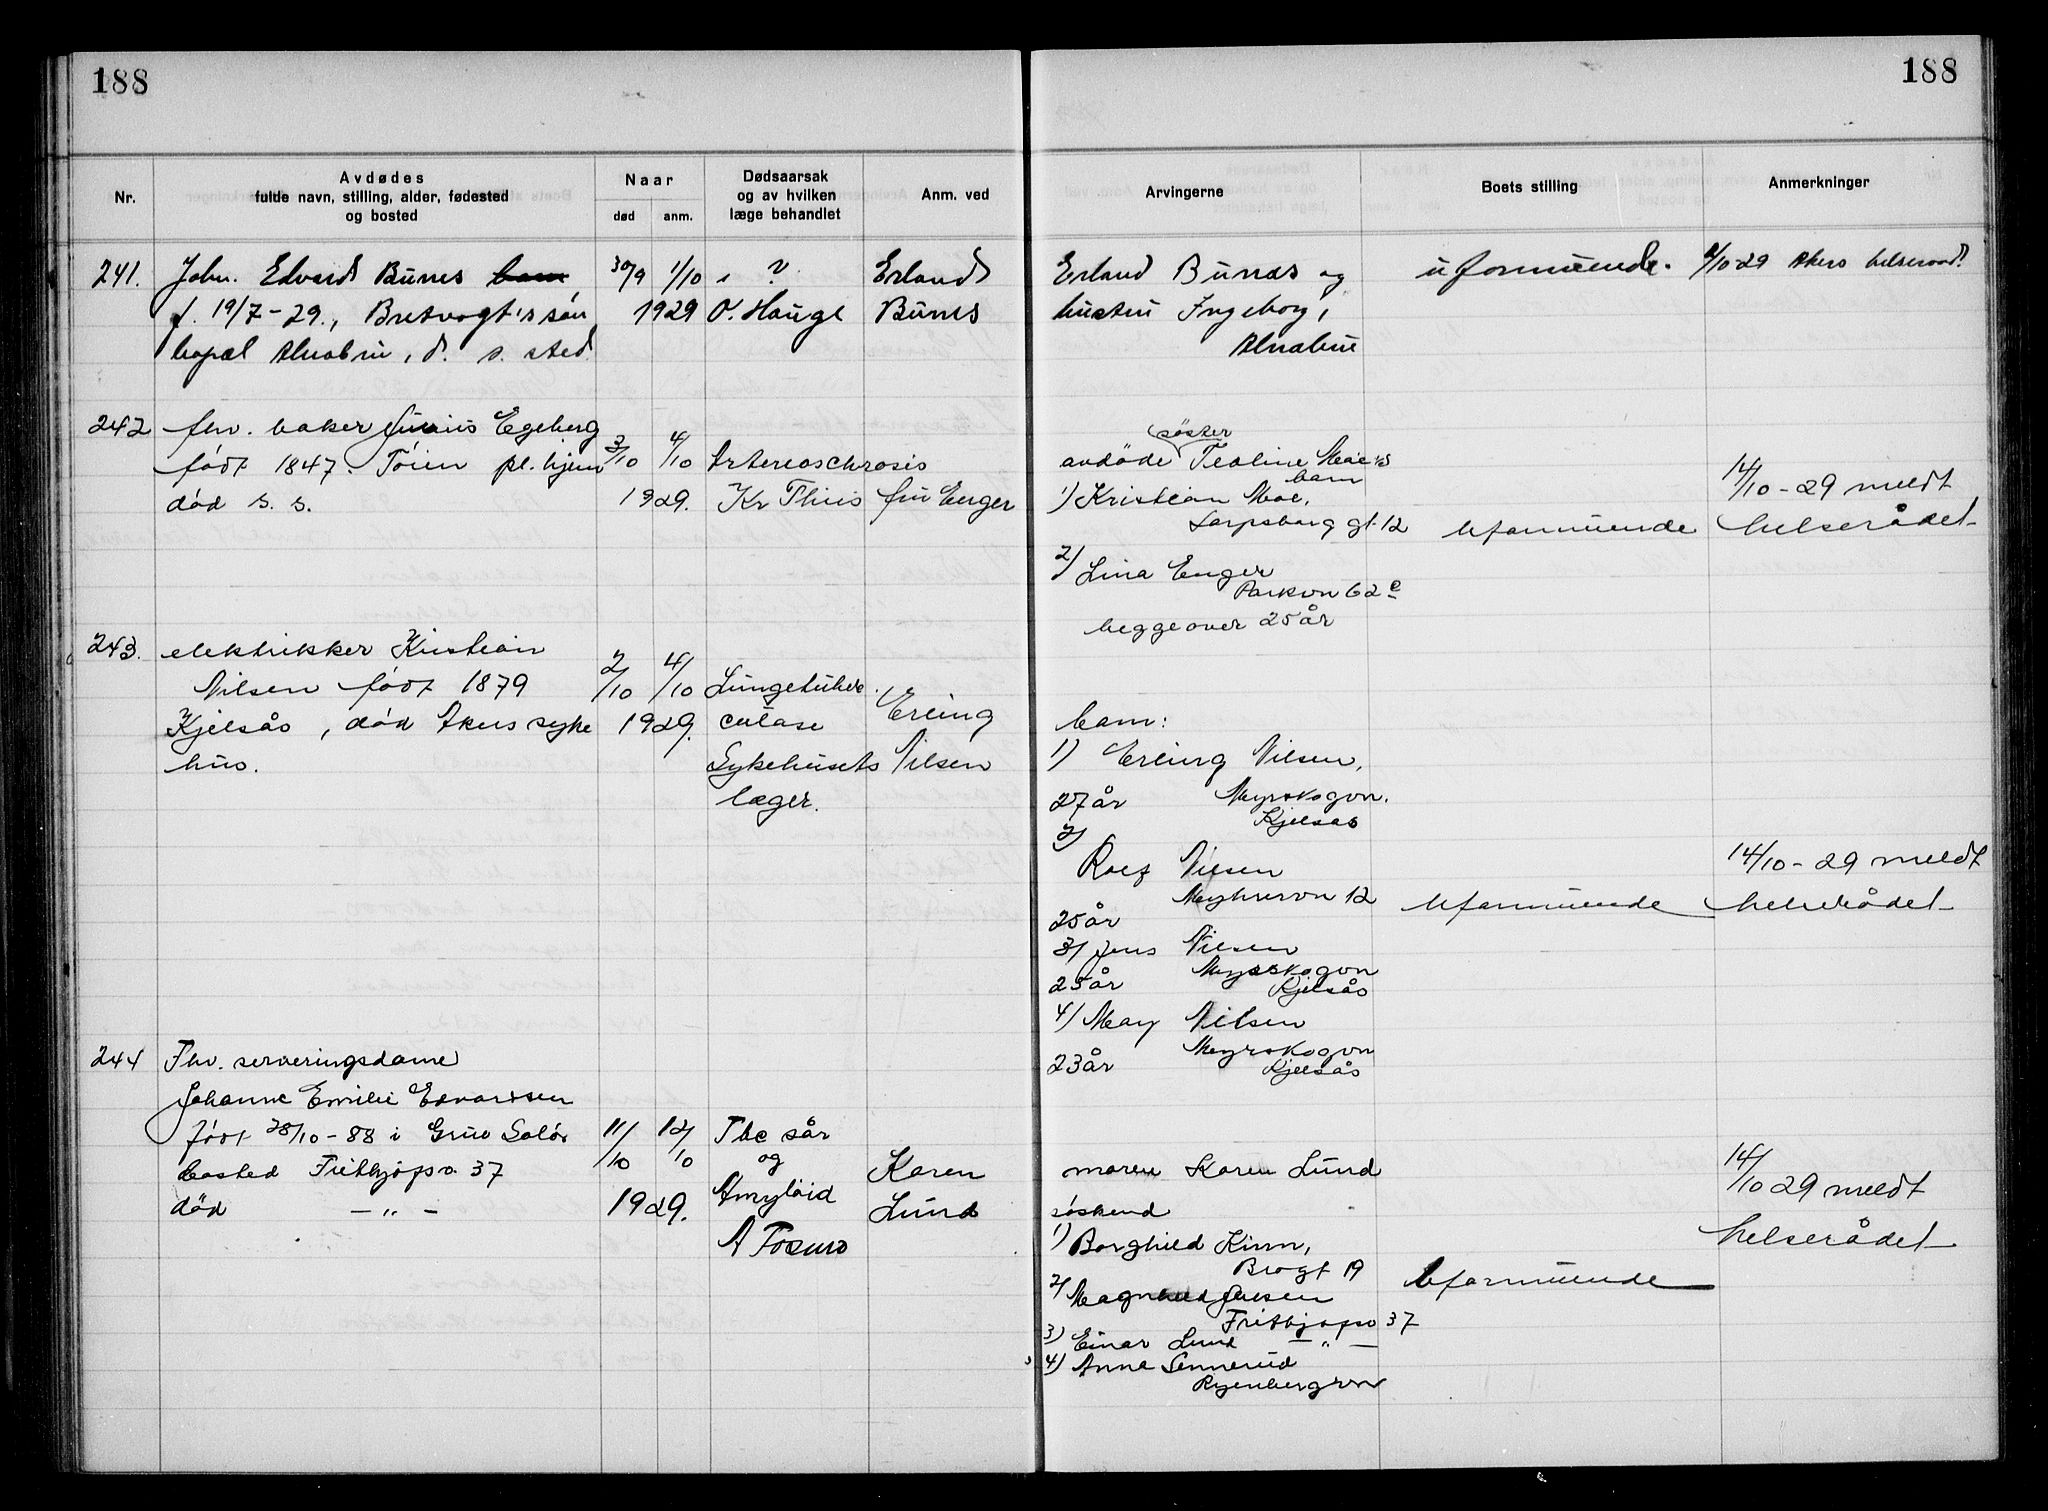 188
188
Nr.
Avdødes
fulde navn, stilling, alder, fødested
og bosted
Naar
død
anm.
Dødsaarsak
og av hvilken
læge behandlet
Anm. ved
Arvingerne
Boets stilling
Anmerkninger
241. John. Edvard Bunes barn 30/9 1/10 ? Erland
f. 19/7-29., Bretvogt's søn 1929 O. Hauge Bunes
kapel Alnabru, d. s. sted.
Erland Bunes og
hustru Ingeborg,
Alnabru
uformuende. /10-29 Akers helseraad.
242 fhv. baker Junius Egeberg
født 1847. Tøien pl.hjem 3/10 4/10 Artereoschrosis
død s. s. 1929. Kr Thiis fru Enger
søster
avdøde Teoline Moe's
barn
1) Kristian Moe,
Sarpsborg gt. 12
2) Lina Enger
Parkvn 62 c
begge over 25 år
Uformuende
14/10-29 meldt
helserådet
243. elektrikker Kristian
Nilsen født 1879 2/10 4/10 Lungetuber
Kjelsås, død Akers syke 1929. culose Erling
hus. Sykehusets Nilsen
læger.
barn:
1) Erling Nilsen,
27 år Myrskogvn.
Kjelsås
2)
Rolf Nilsen
Myhrervn 12
25 år
3) Jens Nilsen
Myrskogvn
25 år Kjelsås
4) May Nilsen
Myrskogvn
23 år Kjelsås
Uformuende
14/10-29 meldt
helserådet
244 Fhv. serveringsdame
Johanne Emilie Edvardsen
født 28/10-88 i Grue Solør 11/10 12/10 Tbc sår
bosted Frithjofsv. 37 og Karen
død -"- 1929. Amyloid Lund
moren Karen Lund
søskend
1) Borghild Kinn,
Brogt 19
2) Magnhild
Frithjofsv 37
3) Einar Lund -"-
4) Anna Sennerud
Ryenbergvn
Uformuende
14/10 29 meldt
helserådet